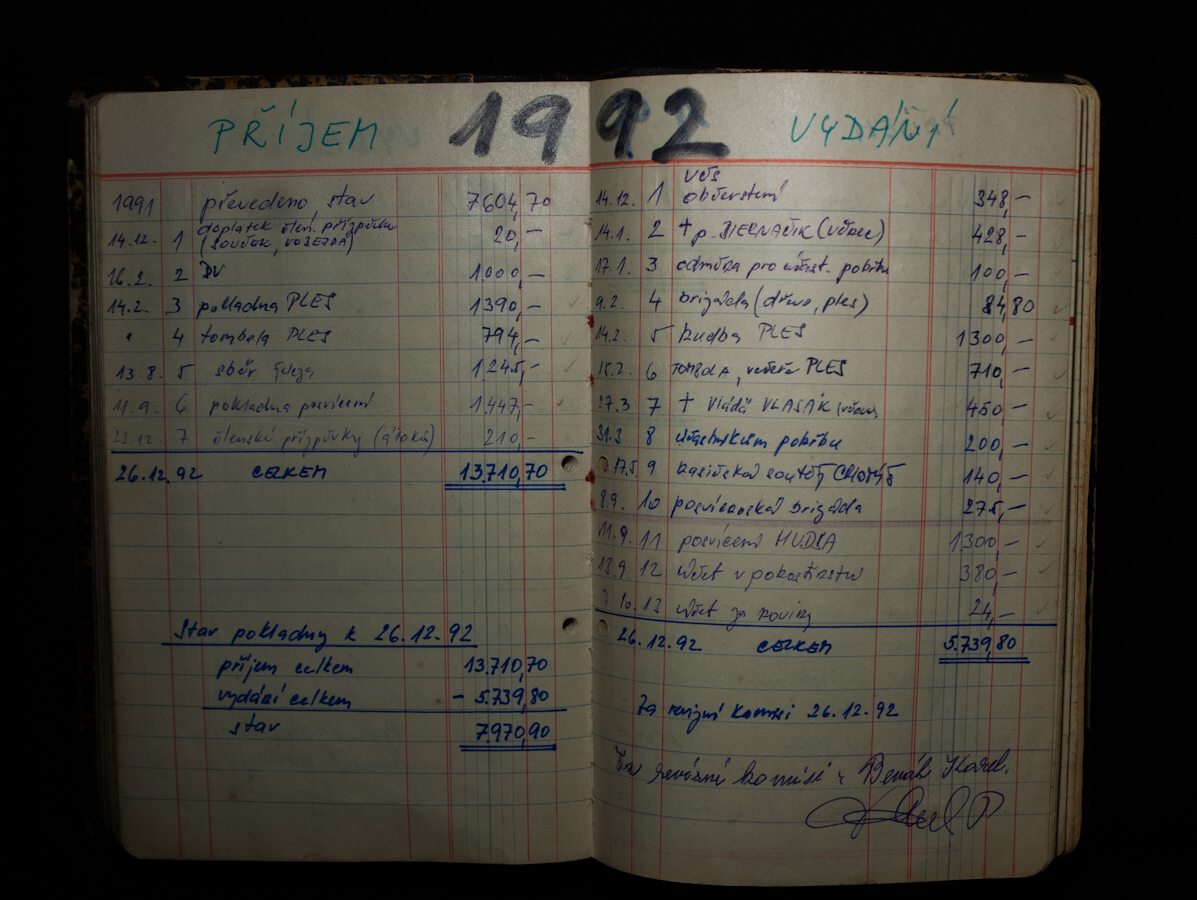 PŘÍJEM 1992 VYDÁNÍ
1991 převedeno stav 7604,70
doplatek člen. příspěvku
14.12. 1 (SOUČEK, VOZEJDA) 20,-
16.2. 2 DV 1.000,-
14.2. 3 pokladna PLES 1390,-
" 4 tombola PLES 794,-
13.8. 5 sběr železa 1.245,-
11.9. 6 pokladna posvícení 1.447,-
23.12. 7 členské příspěvky 210,-
26.12.92 CELKEM 13.710,70
Stav pokladny k 26.12.92
příjem celkem 13.710,70
vydání celkem - 5.739,80
stav 7.970,90
VČS
14.12. 1 občerstvení 348,-
14.1. 2 + p. BIERNAČIK (věnec) 428,-
17.1. 3 odměna pro účast. pohřbu 100,-
9.2. 4 brigáda (dřevo, ples) 84,80
14.2. 5 hudba PLES 1300,-
15.2. 6 TOMBOLA, večeře PLES 710,-
27.3 7 + Vláďa VLASÁK (věnec) 450,-
31.3 8 účastníkům pohřbu 200,-
17.5. 9 hasičská soutěž 140,-
8.9. 10 posvícenská brigáda 275,-
11.9. 11 posvícení HUDBA 1300,-
13.9. 12 účet v pohostinství 380,-
7.10. 13 účet za noviny 24,-
26.12.92 CELKEM 5.739,80
Za revizní komisi 26.12.92
Za revizní komisi : Benák Karel.